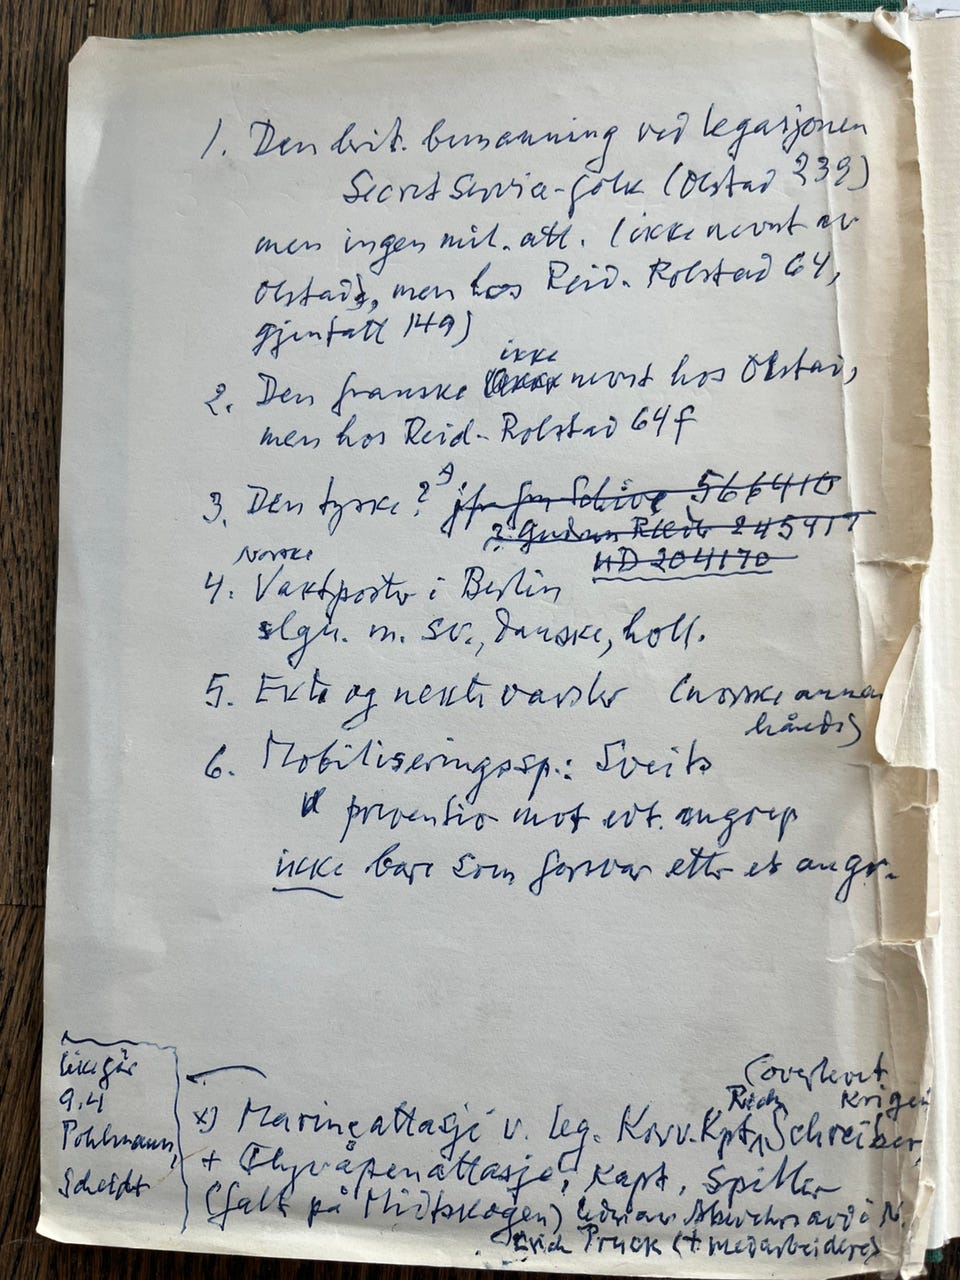 1. Den brit. bemanning ved legasjonen
Secret Service-folk (Olstad 239)
men ingen mil. att. (ikke nevnt av
Olstad, men hos Reid-Rolstad 64,
gjentatt 149)
ikke
2. Den franske nevnt hos Olstad,
men hos Reid-Rolstad 64f
3. Den tyske? jfr. Schive 566410
? Gudrun 245917
UD 204170
Norske
4. Vaktposter i Berlin
slgn. m. sv., danske, holl.
5. Ekte og nekte varsler (norske annen
hånds)
6. Mobiliseringssp.: Sveits
preventiv mot evt. angrep
ikke bare som forsvar etter et angr.
(overlevet
krigen
x) Marineattasjé v. leg. Korv. Kpt. Rich Schreiber,
+ Flyvåpenattasjé, Kapt. Spiller
(falt på Midtskogen) Abwehrs avd i N.
Erich Pruck (+ medarbeidere)
9.4
Pohlmann,
Scheidt